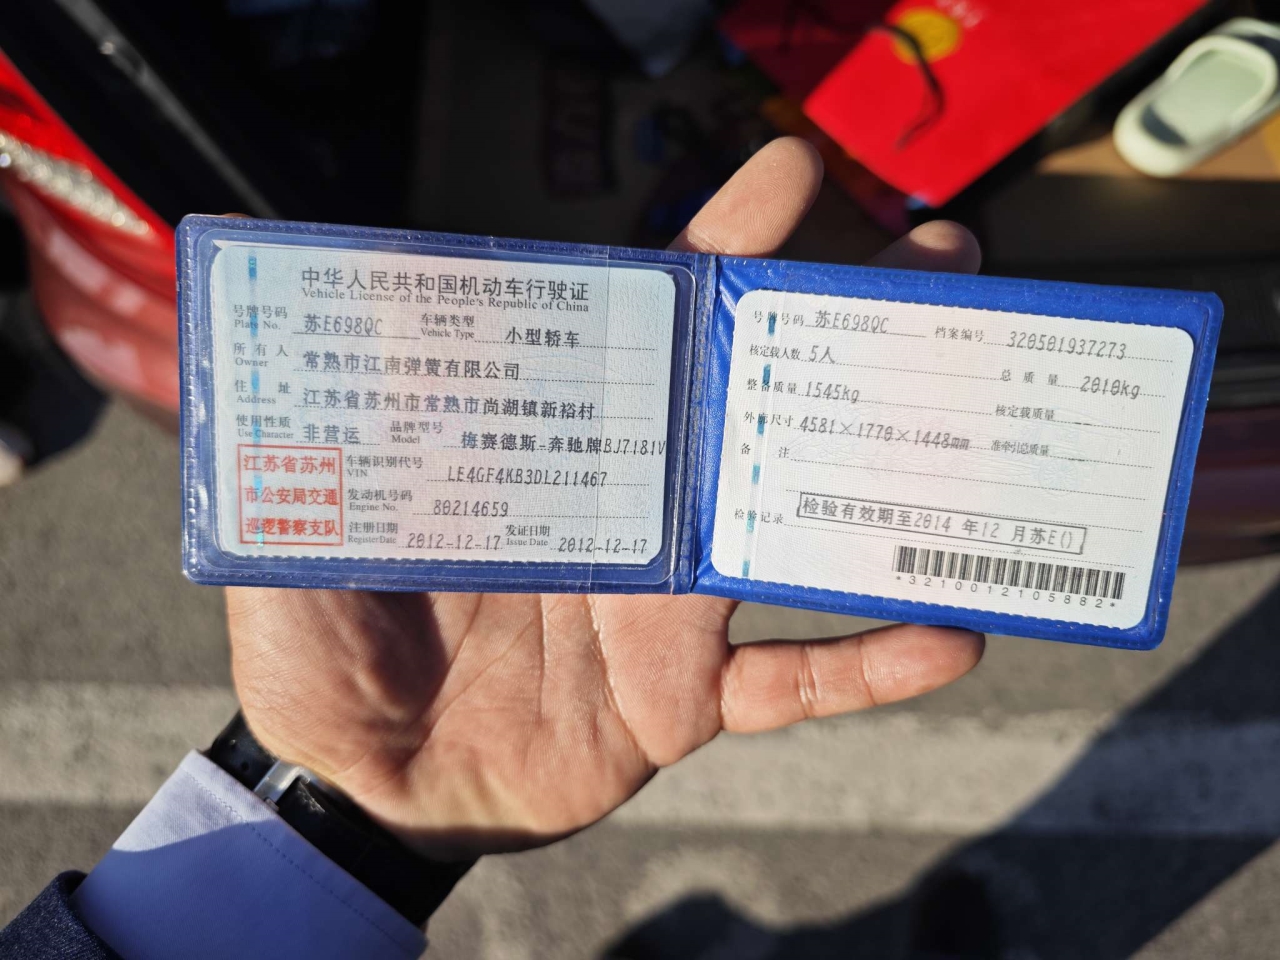 中华人民共和国机动车行驶证
Vehicle License of the People's Republic of China
号牌号码 苏E698QC 车辆类型 小型轿车
Plate No. Vehicle Type
所有人 常熟市江南弹簧有限公司
Owner
住址 江苏省苏州市常熟市尚湖镇新裕村
Address
使用性质 非营运 品牌型号 梅赛德斯-奔驰牌BJ7181V
Use Character Model
江苏省苏州
市公安局交通
巡逻警察支队
车辆识别代号 LE4GF4KB3DL211467
VIN
发动机号码 80214659
Engine No.
注册日期 2012-12-17 发证日期 2012-12-17
Register Date Issue Date
号牌号码 苏E698QC 档案编号 320501937273
核定载人数 5人 总质量 2010kg
整备质量 1545kg 核定载质量
外廓尺寸 4581×1770×1448 准牵引总质量
备注
检验记录 检验有效期至2014 年12 月苏E()
*3210012105882*